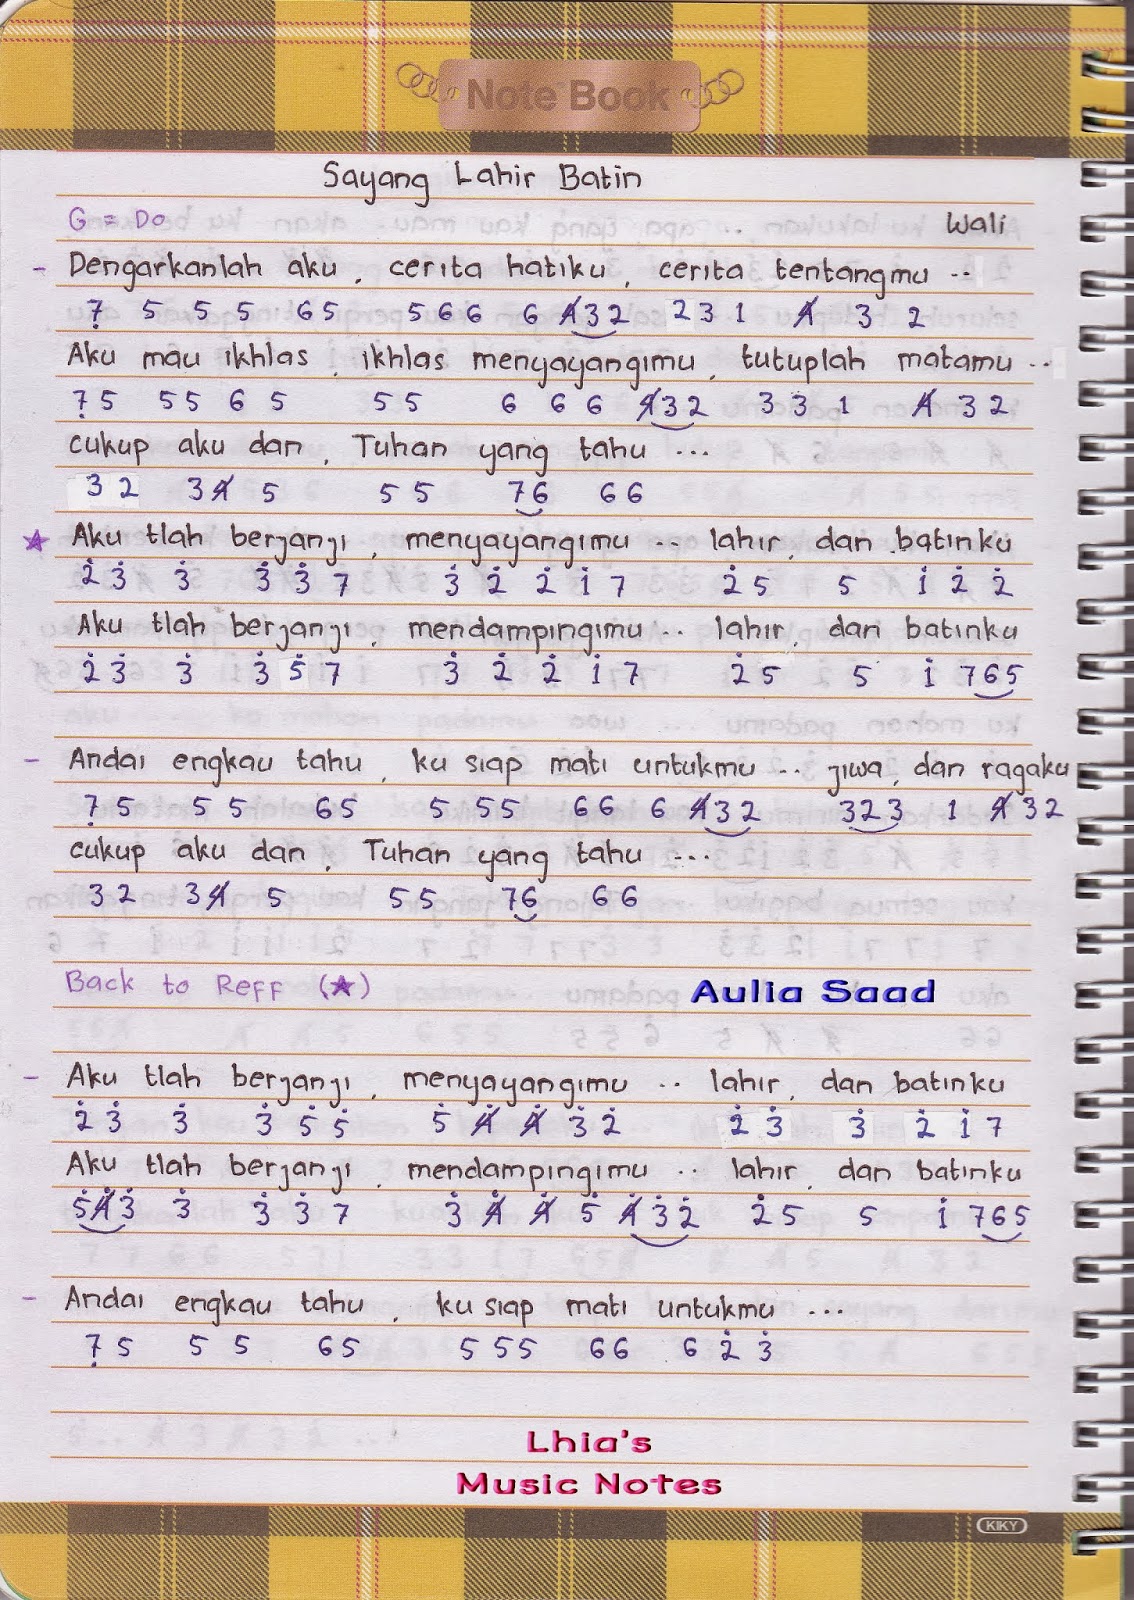 Note Book
Sayang Lahir Batin
G = Do Wali
- Dengarkanlah aku, cerita hatiku, cerita tentangmu ..
7̣ 5 5 5 6 5 5 6 6 6 4̸ 3 2 2 3 1 4̸ 3 2
Aku mau ikhlas, ikhlas menyayangimu, tutuplah matamu ..
7̣ 5 5 5 6 5 5 5 6 6 6 4̸ 3 2 3 3 1 4̸ 3 2
cukup aku dan, Tuhan yang tahu ...
3 2 3 4̸ 5 5 5 7 6 6 6
★ Aku tlah berjanji, menyayangimu .. lahir, dan batinku
2̇ 3̇ 3̇ 3̇ 3̇ 7 3̇ 2̇ 2̇ 1̇ 7 2̇ 5 5 1̇ 2̇ 2̇
Aku tlah berjanji, mendampingimu .. lahir, dan batinku
2̇ 3̇ 3̇ 3̇ 5̇ 7 3̇ 2̇ 2̇ 1̇ 7 2̇ 5 5 1̇ 7 6 5
- Andai engkau tahu, ku siap mati untukmu .. jiwa, dan ragaku
7̣ 5 5 5 6 5 5 5 5 6 6 6 4̸ 3 2 3 2 3 1 4̸ 3 2
cukup aku dan, Tuhan yang tahu ...
3 2 3 4̸ 5 5 5 7 6 6 6
Back to Reff (★) Aulia Saad
- Aku tlah berjanji, menyayangimu .. lahir, dan batinku
2̇ 3̇ 3̇ 3̇ 5̇ 5̇ 5̇ 4̸̇ 4̸̇ 3̇ 2̇ 2̇ 3̇ 3̇ 2̇ 1̇ 7
Aku tlah berjanji, mendampingimu .. lahir, dan batinku
5̇ 4̸̇ 3̇ 3̇ 3̇ 3̇ 7 3̇ 4̸̇ 4̸̇ 5̇ 4̸̇ 3̇ 2̇ 2̇ 5 5 1̇ 7 6 5
- Andai engkau tahu, ku siap mati untukmu ...
7̣ 5 5 5 6 5 5 5 5 6 6 6 2̇ 3̇
Lhia's
Music Notes
KIKY